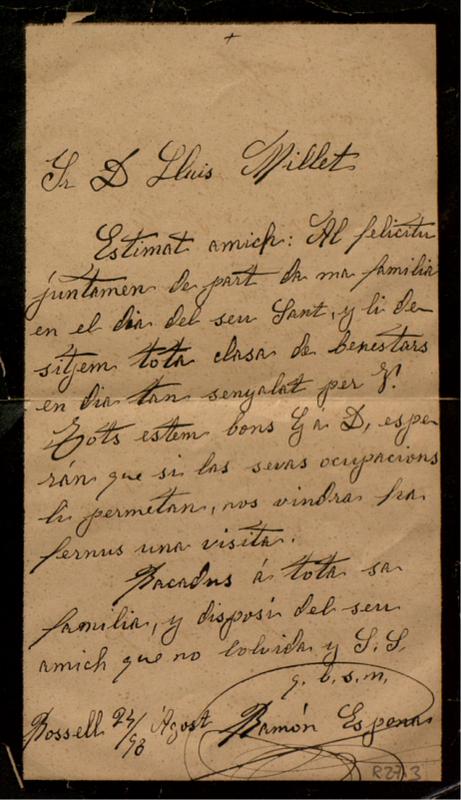 Sr D Lluis Millet
Estimat amich: Al felicitu
juntamen de part da ma familia
en el dia del seu Sant, y li de-
sitjem tota clasa de benestars
en dia tan senyalat per V.
Tots estem bons G á D, espe-
rán que si las sevas ocupacions
li permetan, nos vindra há
fernus una visita.
Racadus á tota sa
familia, y disposi del seu
amich que no lolvida y S. S.
q. b. s. m.
Rossell 24/98 Agost Ramón Espona
R27.3